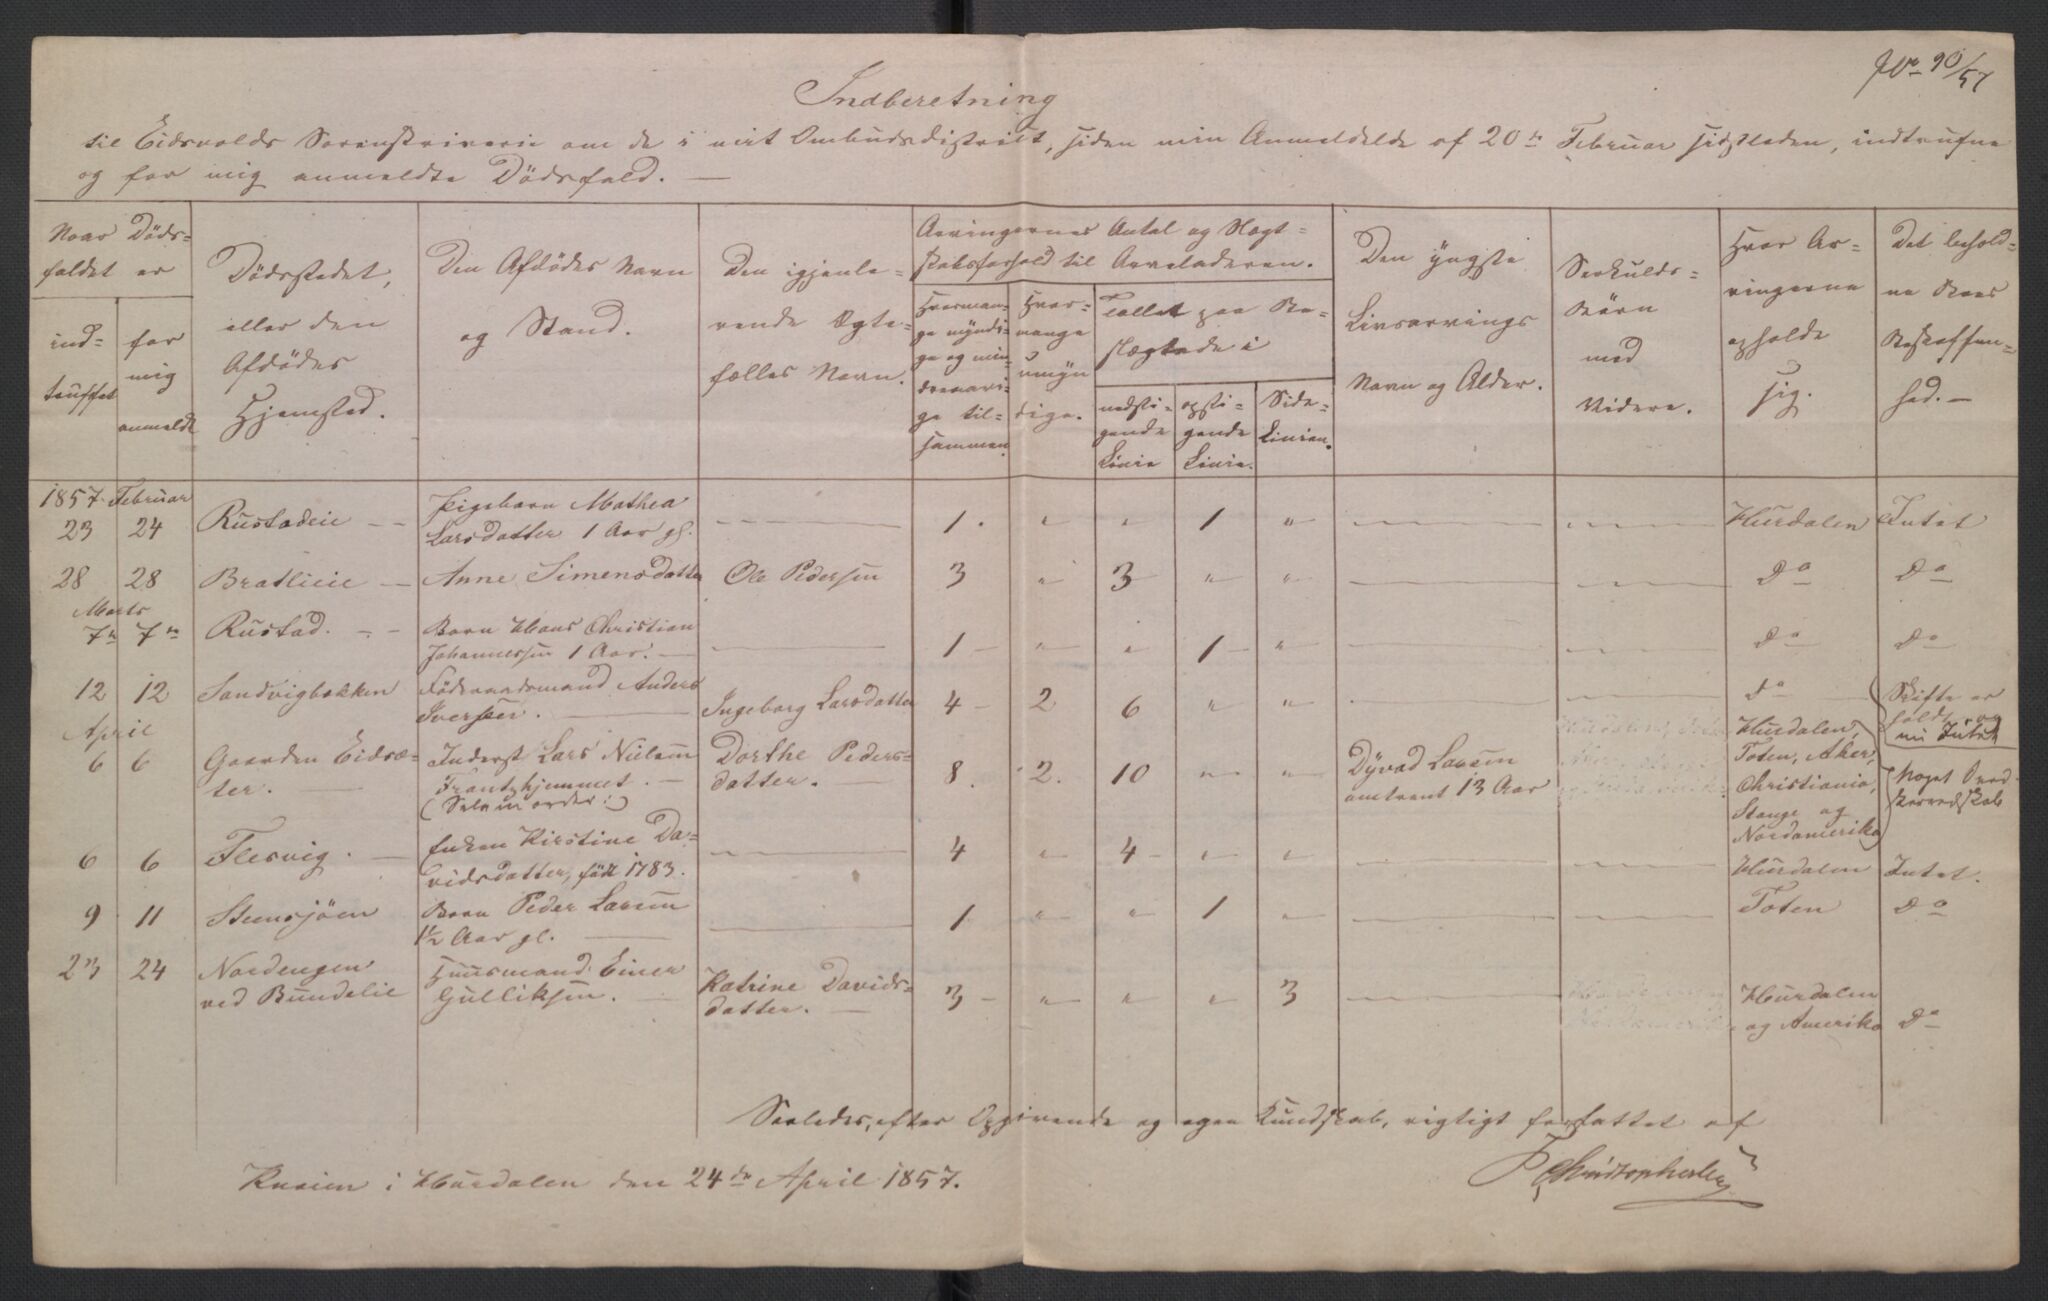 No 90/57
Indberetning
til Eidsvolds Sorenskriverie om de i mit Ombudsdistrikt, siden min Anmeldelse af 20de Februar sidstleden, indtrufne
og for mig anmeldte Dødsfald. —
Naar Døds-
faldet er
ind-
truffet
for
mig
anmeldt
Dødsstedet,
eller den
Afdødes
Hjemsted.
Den Afdødes Navn
og Stand.
Den igjenle-
vende Ægte-
fælles Navn.
Arvingernes Antal og Slægt-
skabsforhold til Arveladeren.
Hvorman-
ge myndi-
ge og min-
dreaari-
ge til-
sammen.
Hvor-
mange
umyn
dige.
Tallet paa Be-
slægtede i
nedsti-
gende
Linie
opsti-
gende
Linie.
Side-
Linien.
Den yngste
Livsarvings
Navn og Alder.
Særkulds-
Børn
med
Videre.
Hvor Ar-
vingerne
opholde
sig.
Det behold-
ne Boes
Beskaffen-
hed. —
1857 Februar
23 24 Rustadeie - - Pigebarn Mathea
Larsdatter 1 Aar gl. 1. " " 1 " Hurdalen Intet
28 28 Bratlieie — Anne Simensdatter Ole Pedersen 3 " 3 " " Do Do
Marts
7de 7de Rustad. - - Barn Hans Christian
Johannessen 1 Aar. — 1 — " " 1 — " Do Do
12 12 Sandvigbakken Føderaadsmand Anders
Iversen. — Ingeborg Larsdatter 4 — 2 6 " " Do Skifte er
holdt og
nu Intet
April
6 6 Gaarden Eidsæ-
ter. — Inderst Lars Nielsen
Frantzhjemmet. —
Dorthe Peders-
datter. — 8 2. 10 " " Dyvad Larsen
omtrent 13 Aar Hurdalen,
Toten, Aker,
Christiania,
Stange og
Nordamerika
Noget
6 6 Flesvig. — Enken Kirstine Da-
vidsdatter, født 1783. 4 " 4 — " " Hurdalen Intet.
9 11 Steensjøen Barn Peder Larsen
1½ Aar gl. — 1 " " 1 " Toten Do
23 24 Nordengen
ved Bundelie Huusmand Einer
Gulliksen. — Katrine Davids-
datter. — 3 — " " " 3 Hurdalen
og Amerika Do
Saaledes, efter Opgivende og egen Kundskab, rigtigt forfattet af
Knaien i Hurdalen den 24de April 1857.
P Christophersen